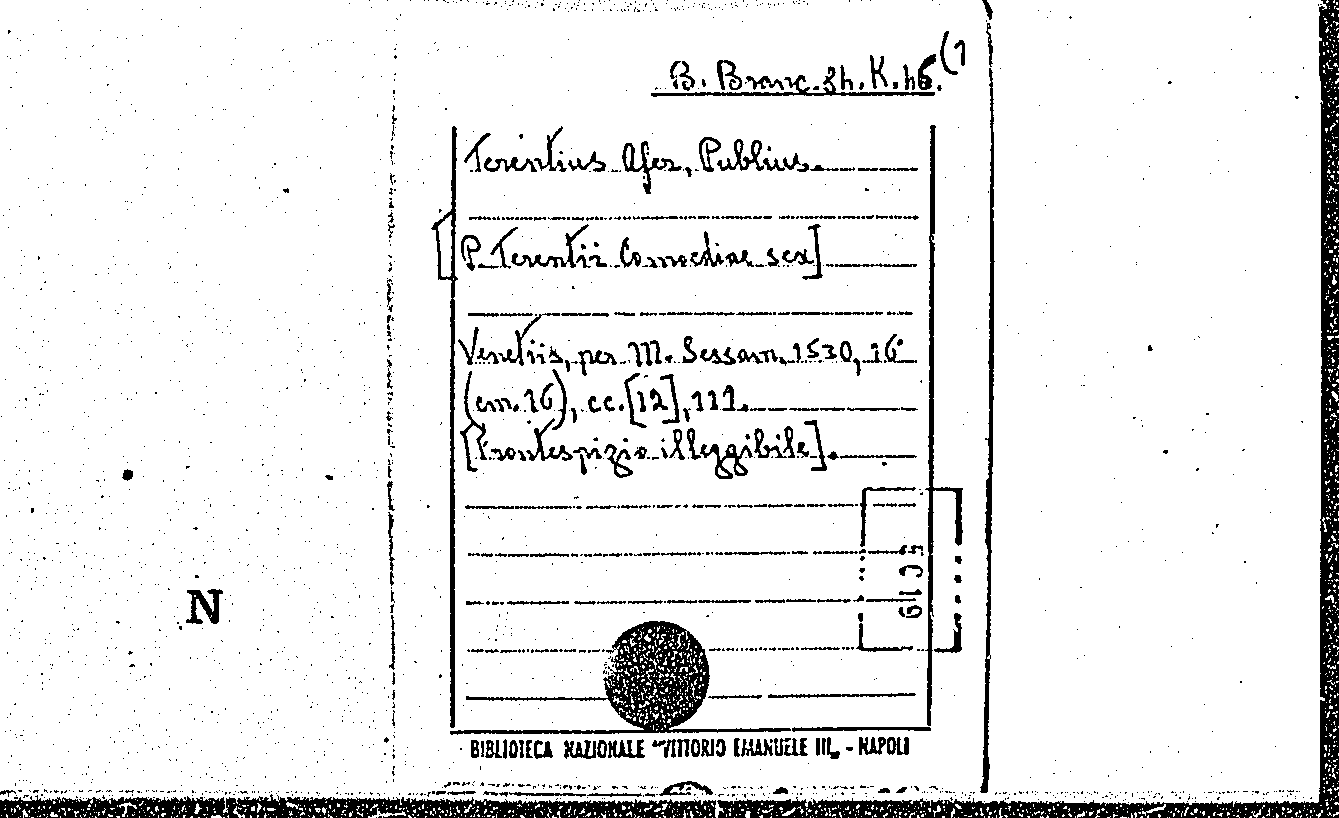 B. Branc. 3h. K. h6. (1
Terentius Afer, Publius.
[P. Terentii Comoediae sex]
Venetiis, per M. Sessam, 1530, 16°
(cm. 16), cc. [12], 111.
[Frontespizio illeggibile].
N
BIBLIOTECA NAZIONALE "VITTORIO EMANUELE III„ - NAPOLI